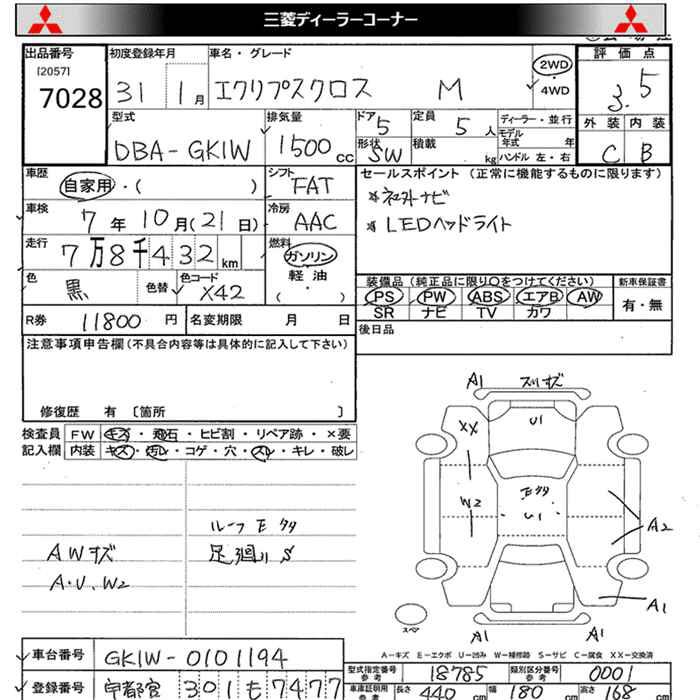 三菱ディーラーコーナー
出品番号
[2057]
7028
初度登録年月
31 1月
車名・グレード
エクリプスクロス M
2WD
・
4WD
評価点
3.5
外装 内装
C B
型式
DBA-GK1W
排気量
1500cc
ドア 5
形状 SW
定員 5人
積載 kg
ディーラー・並行
モデル年式 年
ハンドル 左・右
車歴
自家用・( )
シフト
FAT
車検
7年10月(21日)
冷房
AAC
走行
7万8千432km
燃料
ガソリン
軽油
( ・ )
色
黒
色替
色コード
X42
R券 11800円
名変期限 月 日
セールスポイント(正常に機能するものに限ります)
※社外ナビ
※LEDヘッドライト
装備品(純正品に限り○をつけてください)
新車保証書
PS PW ABS エアB AW
SR ナビ TV カワ
有・無
後日品
注意事項申告欄(不具合内容等は具体的に記入して下さい)
修復歴 有〔箇所 〕
検査員記入欄
FW キズ・飛石・ヒビ割・リペア跡・×要
内装 キズ・汚レ・コゲ・穴・スレ・キレ・破レ
ルーフモタタ
AWキズ
足廻りS
A・U、W2
A1
スリキズ
U1
XX
W2
モタタ
・U1・
A2
A1
A1
A1
スペア
A-キズ E-エクボ U-凹み W-補修跡 S-サビ C-腐食 XX-交換済
車台番号 GK1W-0101194
登録番号 宇都宮 301 も 7477
型式指定番号 参考 18785
類別区分番号 参考 0001
車庫証明用 参考 長さ 440cm 幅 180cm 高さ 168cm